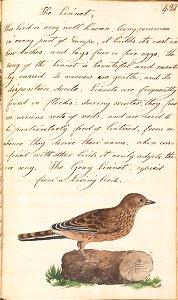 431
The Linnet,
this bird is very well known, being common
in every part of Europe, it builds its nest in
low bushes, and lays four or five eggs. the
song of the Linnet is beautiful and sweetly
varied. its manners are gentle, and its
disposition docile. Linnets are frequently
found in flocks: during winter, they feed
on various sorts of seeds, and are said to
be particularly fond of lintseed, from
whence they derive their name, when con-
fined with other birds it easily adopts the
ir song. The Gray Linnet, copied
from a living bird.